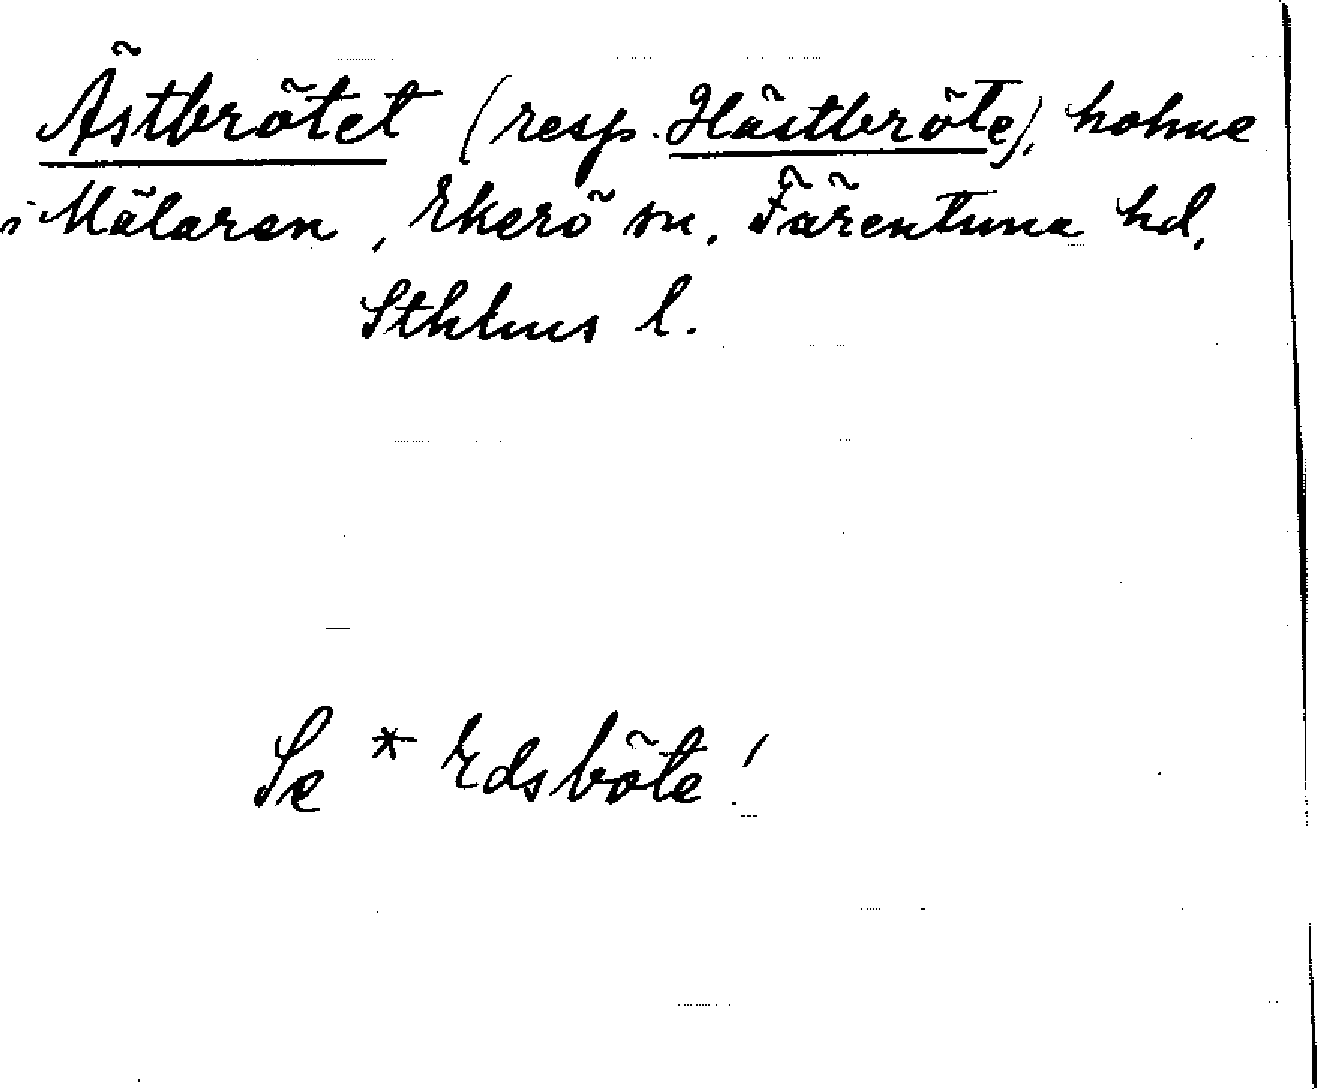 Ästbrötet (resp. Hästbröte), holme
i Mälaren, Ekerö sn, Färentuna hd,
Sthlms l.
Se * Edsböte!